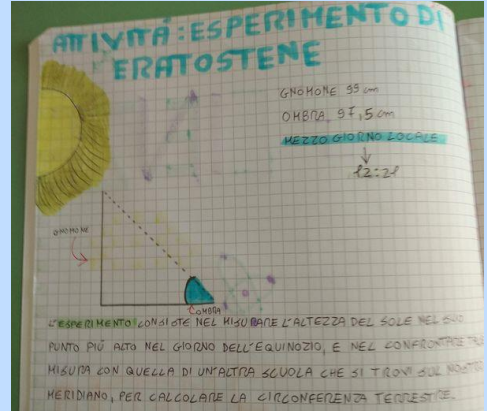 ATTIVITÁ: ESPERIMENTO DI
ERATOSTENE
GNOMONE 99 cm
OMBRA 97,5 cm
MEZZO GIORNO LOCALE
12:21
GNOMONE
OMBRA
L'ESPERIMENTO CONSISTE NEL MISURARE L'ALTEZZA DEL SOLE NEL SUO
PUNTO PIÚ ALTO NEL GIORNO DELL'EQUINOZIO, E NEL CONFRONTARE TALE
MISURA CON QUELLA DI UN'ALTRA SCUOLA CHE SI TROVI SUL NOSTRO
MERIDIANO, PER CALCOLARE LA CIRCONFERENZA TERRESTRE.